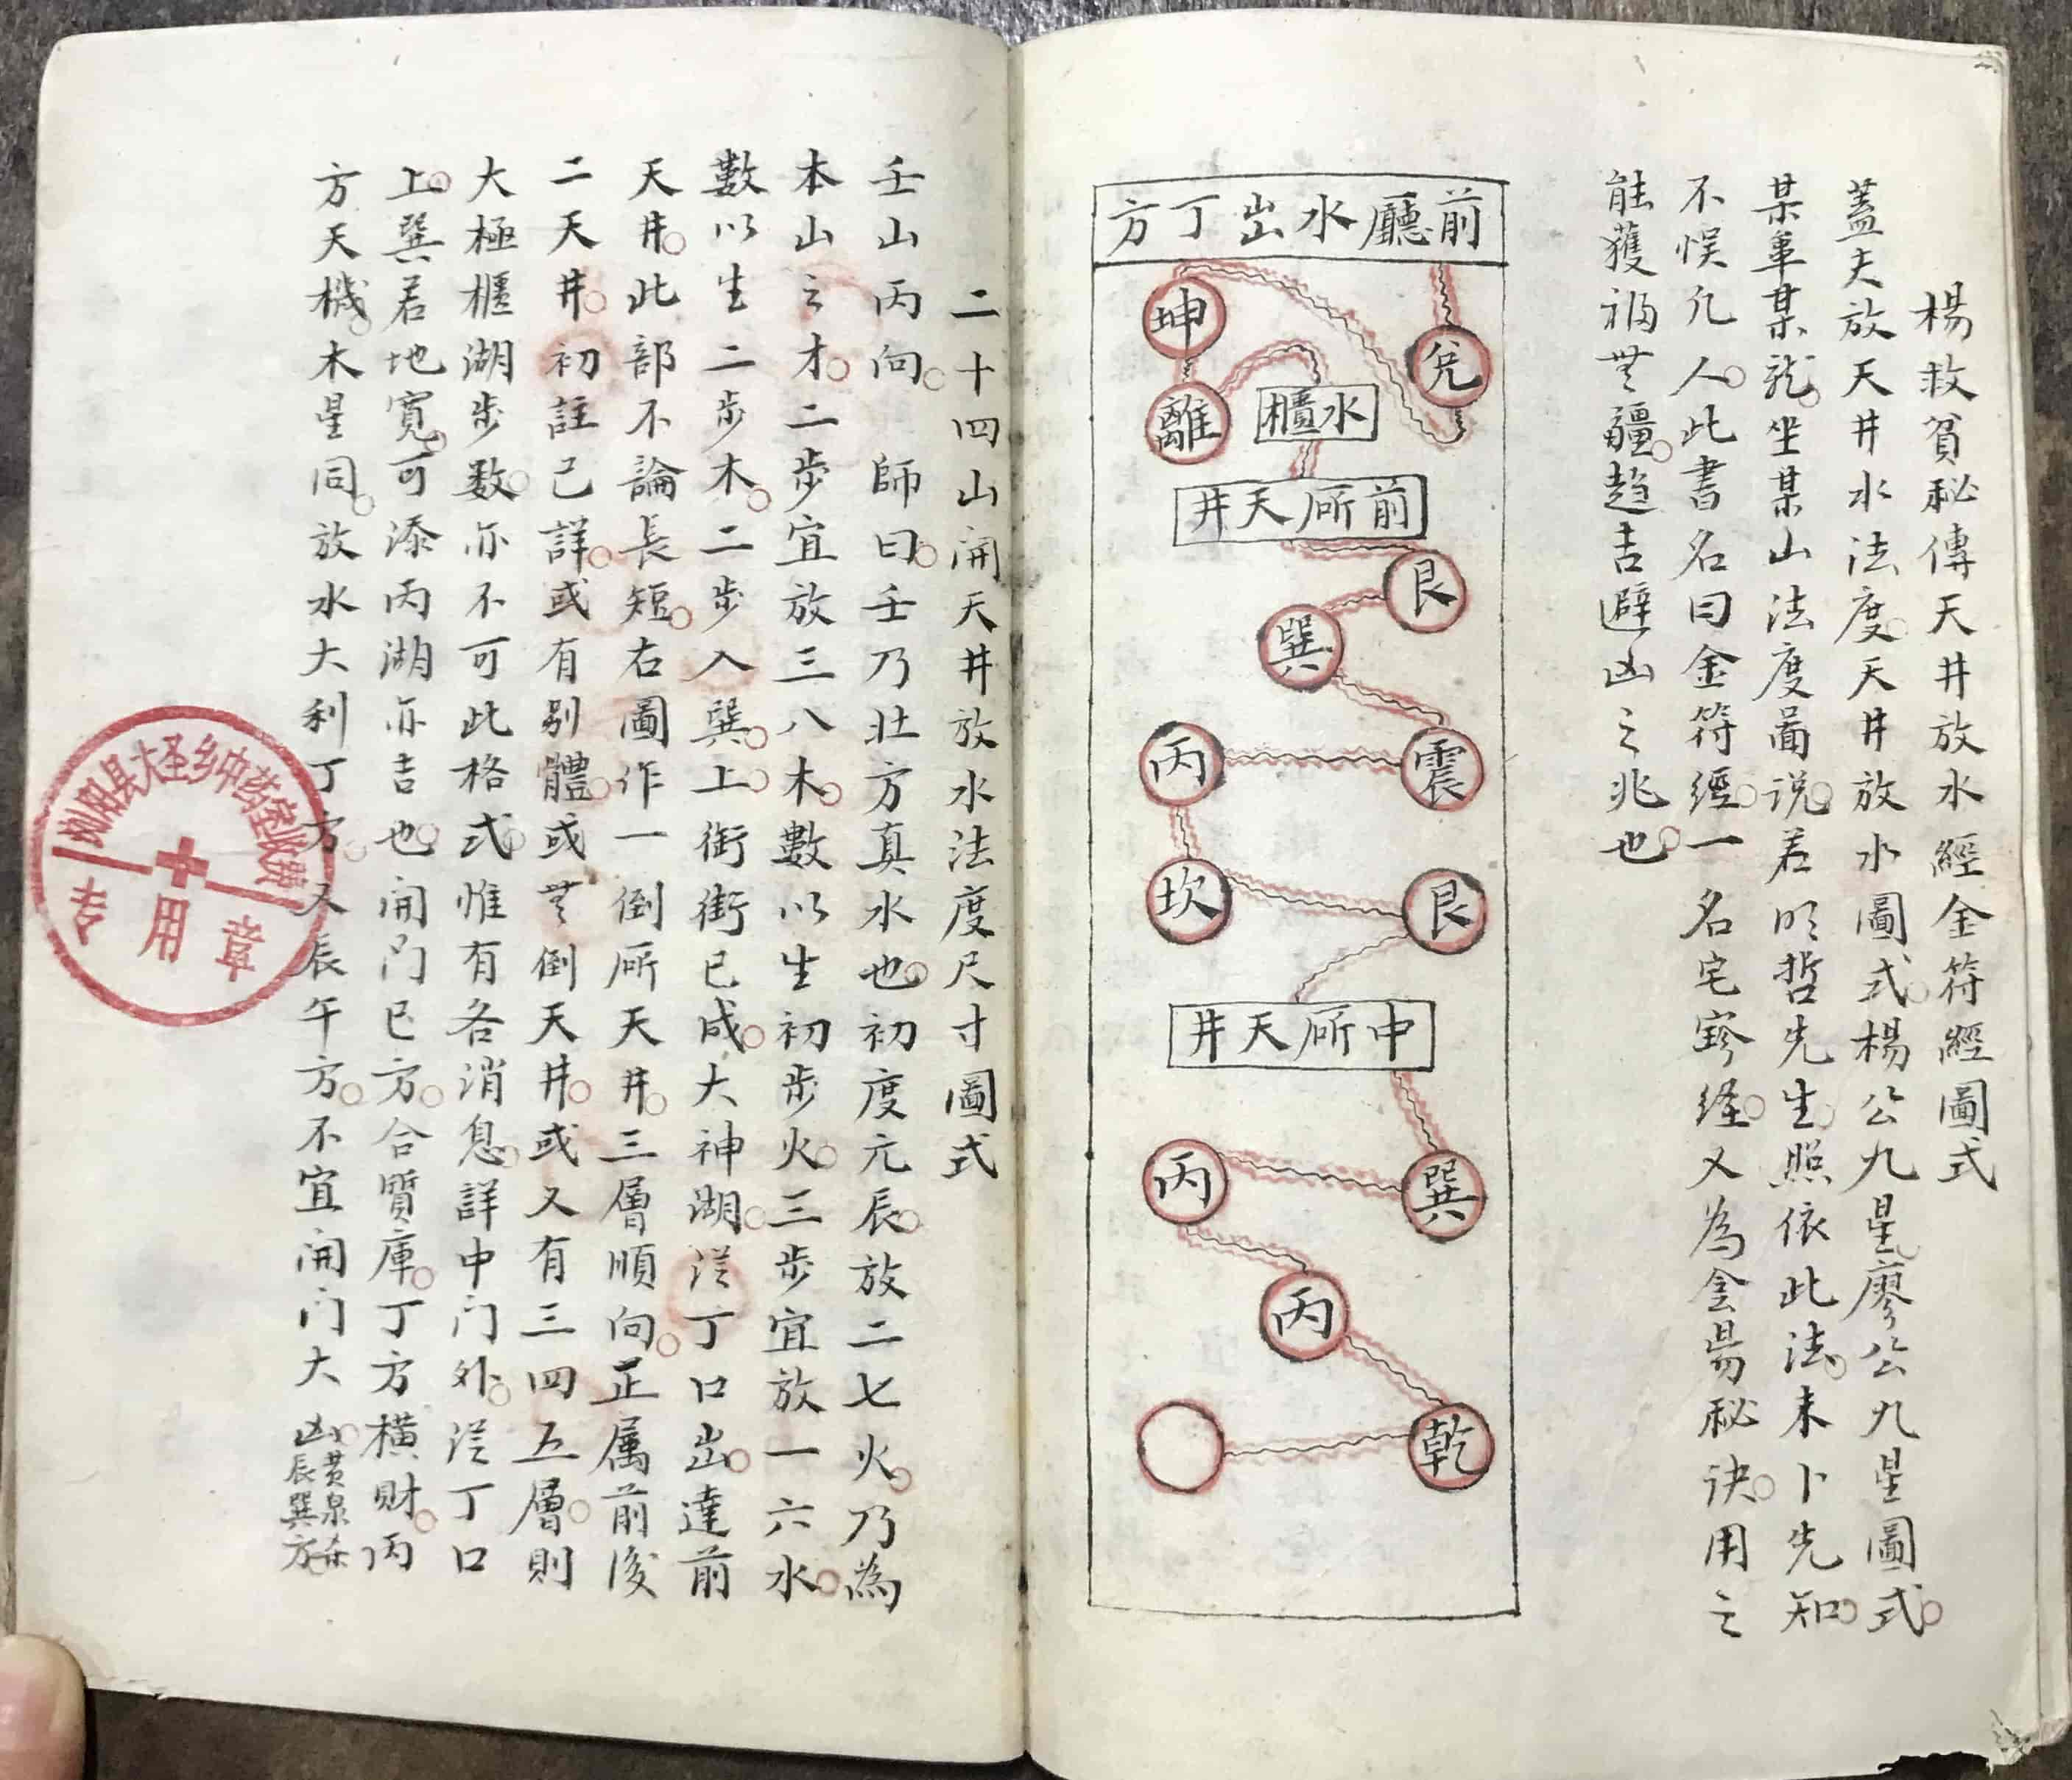 楊救貧秘傳天井放水經金符經圖式
蓋夫放天井水法度天井放水圖式楊公九星廖公九星圖式
某單某龍坐某山法度圖说若明哲先生照依此法未卜先知
不悞凢人此書名曰金符經一名宅寳經又為金昜秘诀用之
能獲福無疆趋吉避凶之兆也
前廳水出丁方
兊
坤
離
水櫃
前㕔天井
艮
巽
震
丙
坎
艮
中㕔天井
巽
丙
丙
乾
二十四山開天井放水法度尺寸圖式
壬山丙向師曰壬乃壮方真水也初度元辰放二七火乃為
本山之才二步宜放三八木數以生初步火三步宜放一六水
數以生二步木二步入巽上街街已成大神湖從丁口出達前
天井此部不論長短右圖作一倒㕔天井三層順向正属前後
二天井初註已詳或有别體或無倒天井或又有三四五層則
大極櫃湖步数亦不可此格式惟有各消息詳中门外從丁口
上巽若地寬可添丙湖亦吉也開门巳方合質庫丁方横財丙
方天機木星同放水大利丁方又辰午方不宜開门大凶黄泉杀
辰巽方
浏阳县大圣乡中药室收费
专用章